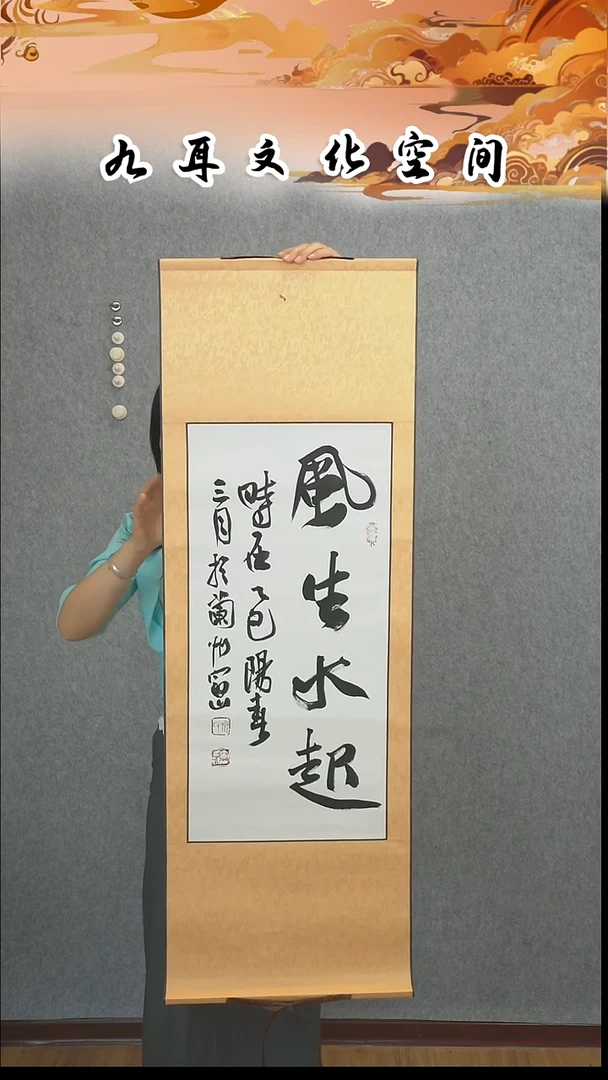 九耳文化空间
風生水起
時在乙巳陽春
三月於蘭州